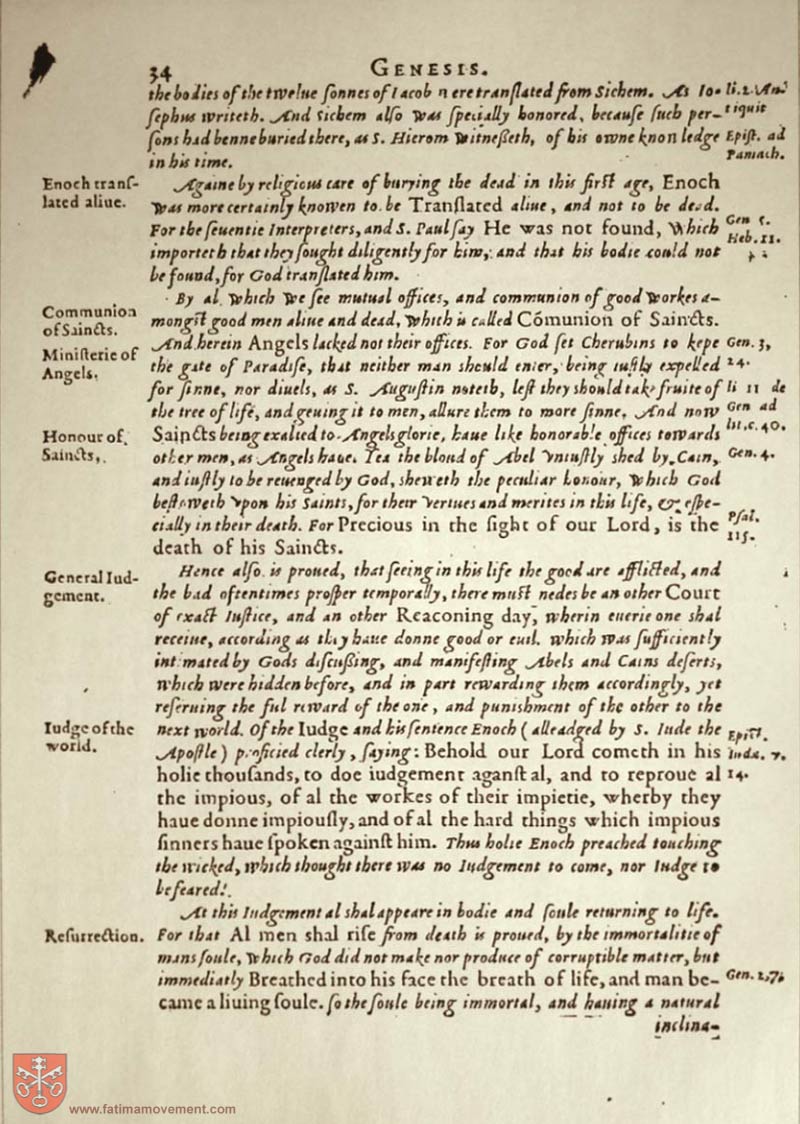 34 GENESIS.
the bodies of the twelue ſonnes of Iacob were tranſlated from Sichem. As Io-
ſephus writeth. And Sichem alſo was ſpecially honored, becauſe ſuch per-
ſons had benne buried there, as S. Hierom witneßeth, of his owne knowledge
in his time.
li. 2. Anti
tiquit
Epiſt. ad
Pamach.
Enoch tranſ-
lated aliue.
Againe by religious care of burying the dead in this firſt age, Enoch
was more certainly knowen to be Tranſlated aliue, and not to be dead.
For the ſeuentie Interpreters, and S. Paul ſay He was not found, which
importeth that they ſought diligently for him, and that his bodie could not
be found, for God tranſlated him.
Gen 5.
Heb. 11.
Communion
of Saincts.
Miniſterie of
Angels.
Honour of
Saincts,
By al which we ſee mutual offices, and communion of good workes a-
mongſt good men aliue and dead, which is called Cómunion of Saincts.
And herein Angels lacked not their offices. For God ſet Cherubins to kepe
the gate of Paradiſe, that neither man should enter, being iuſtly expelled
for ſinne, nor diuels, as S. Auguſtin noteth, leſt they should take fruite of
the tree of life, and geuing it to men, allure them to more ſinne. And now
Saincts being exalted to Angels glorie, haue like honorable offices towards
other men, as Angels haue. Yea the bloud of Abel vniuſtly shed by Cain,
and iuſtly to be reuenged by God, sheweth the peculiar honour, which God
beſtoweth vpon his Saints, for their vertues and merites in this life, & eſpe-
cially in their death. For Precious in the ſight of our Lord, is the
death of his Saincts.
Gen. 3,
24.
li 11 de
Gen ad
lit. c. 40.
Gen. 4.
Pſal.
115.
General Iud-
gement.
Hence alſo is proued, that ſeeing in this life the good are afflicted, and
the bad oftentimes proſper temporally, there muſt nedes be an other Court
of exact Iuſtice, and an other Reaconing day, wherin euerie one shal
receiue, according as they haue donne good or euil. which was ſufficiently
intimated by Gods diſcußing, and manifeſting Abels and Cains deſerts,
which were hidden before, and in part rewarding them accordingly, yet
reſeruing the ful reward of the one, and punishment of the other to the
next world. Of the Iudge and his ſentence Enoch (alleadged by S. Iude the
Apoſtle) proficied clerly, ſaying: Behold our Lord cometh in his
holie thouſands, to doe iudgement aganſt al, and to reproue al
the impious, of al the workes of their impietie, wherby they
haue donne impiouſly, and of al the hard things which impious
ſinners haue ſpoken againſt him. Thus holie Enoch preached touching
the wicked, which thought there was no Iudgement to come, nor Iudge to
be feared.
Iudge of the
world.
Epiſt.
Iudæ. v.
14.
Reſurrection.
At this Iudgement al shal appeare in bodie and ſoule returning to life.
For that Al men shal riſe from death is proued, by the immortalitie of
mans ſoule, which God did not make nor produce of corruptible matter, but
immediatly Breathed into his face the breath of life, and man be-
came a liuing ſoule. ſo the ſoule being immortal, and hauing a natural
inclina-
Gen. 2, 7.
www.fatimamovement.com